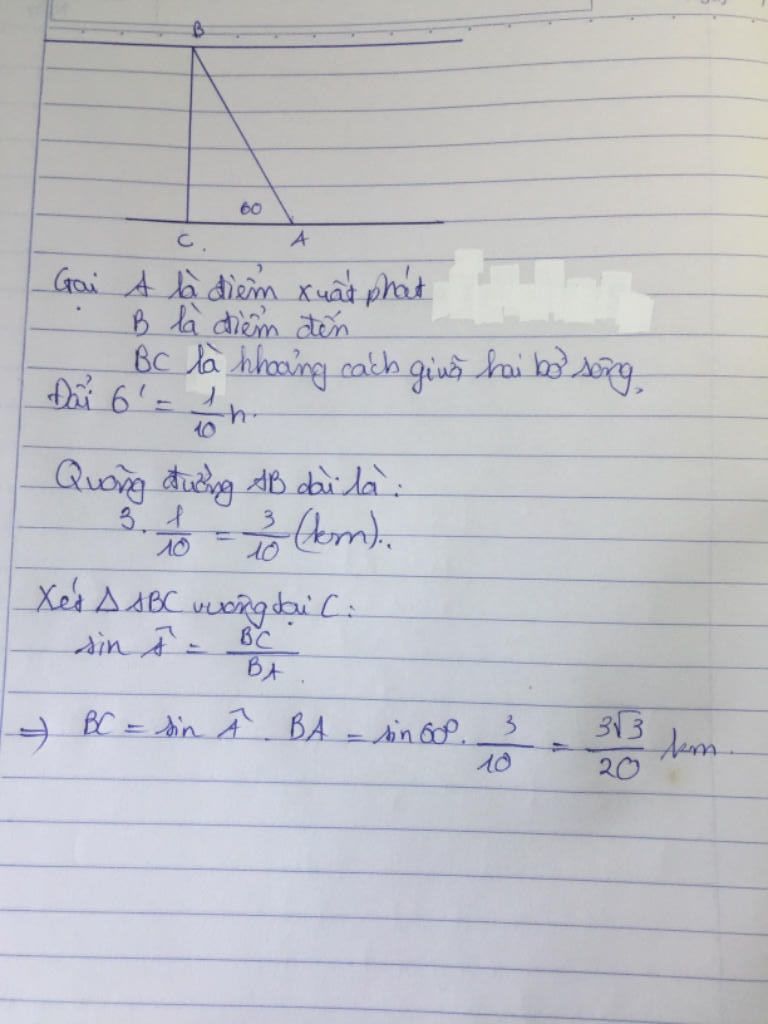 B
60
C.
A
Gọi A là điểm xuất phát
B là điểm đến
BC là khoảng cách giữa hai bờ sông.
Đổi 6' = 1/10 h.
Quãng đường AB dài là:
3. 1/10 = 3/10 (km)..
Xét Δ ABC vuông tại C:
sin Â = BC/BA.
=> BC = sin Â . BA = sin 60º. 3/10 = 3√3/20 km.